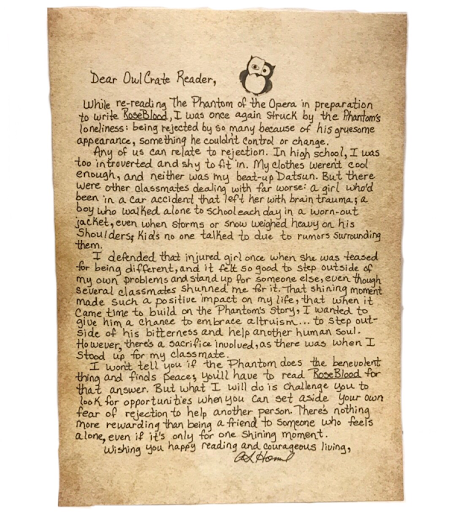 Dear OwlCrate Reader,
While re-reading The Phantom of the Opera in preparation
to write RoseBlood, I was once again struck by the Phantom's
loneliness: being rejected by so many because of his gruesome
appearance, something he couldn't control or change.
Any of us can relate to rejection. In high school, I was
too introverted and shy to fit in. My clothes weren't cool
enough, and neither was my beat-up Datsun. But there
were other classmates dealing with far worse: a girl who'd
been in a car accident that left her with brain trauma; a
boy who walked alone to school each day in a worn-out
jacket, even when storms or snow weighed heavy on his
shoulders; kids no one talked to due to rumors surrounding
them.
I defended that injured girl once when she was teased
for being different, and it felt so good to step outside of
my own problems and stand up for someone else, even though
several classmates shunned me for it. That shining moment
made such a positive impact on my life, that when it
came time to build on the Phantom's story, I wanted to
give him a chance to embrace altruism... to step out-
side of his bitterness and help another human soul.
However, there's a sacrifice involved, as there was when I
stood up for my classmate.
I won't tell you if the Phantom does the benevolent
thing and finds peace; you'll have to read RoseBlood for
that answer. But what I will do is challenge you to
look for opportunities when you can set aside your own
fear of rejection to help another person. There's nothing
more rewarding than being a friend to someone who feels
alone, even if it's only for one shining moment.
Wishing you happy reading and courageous living,